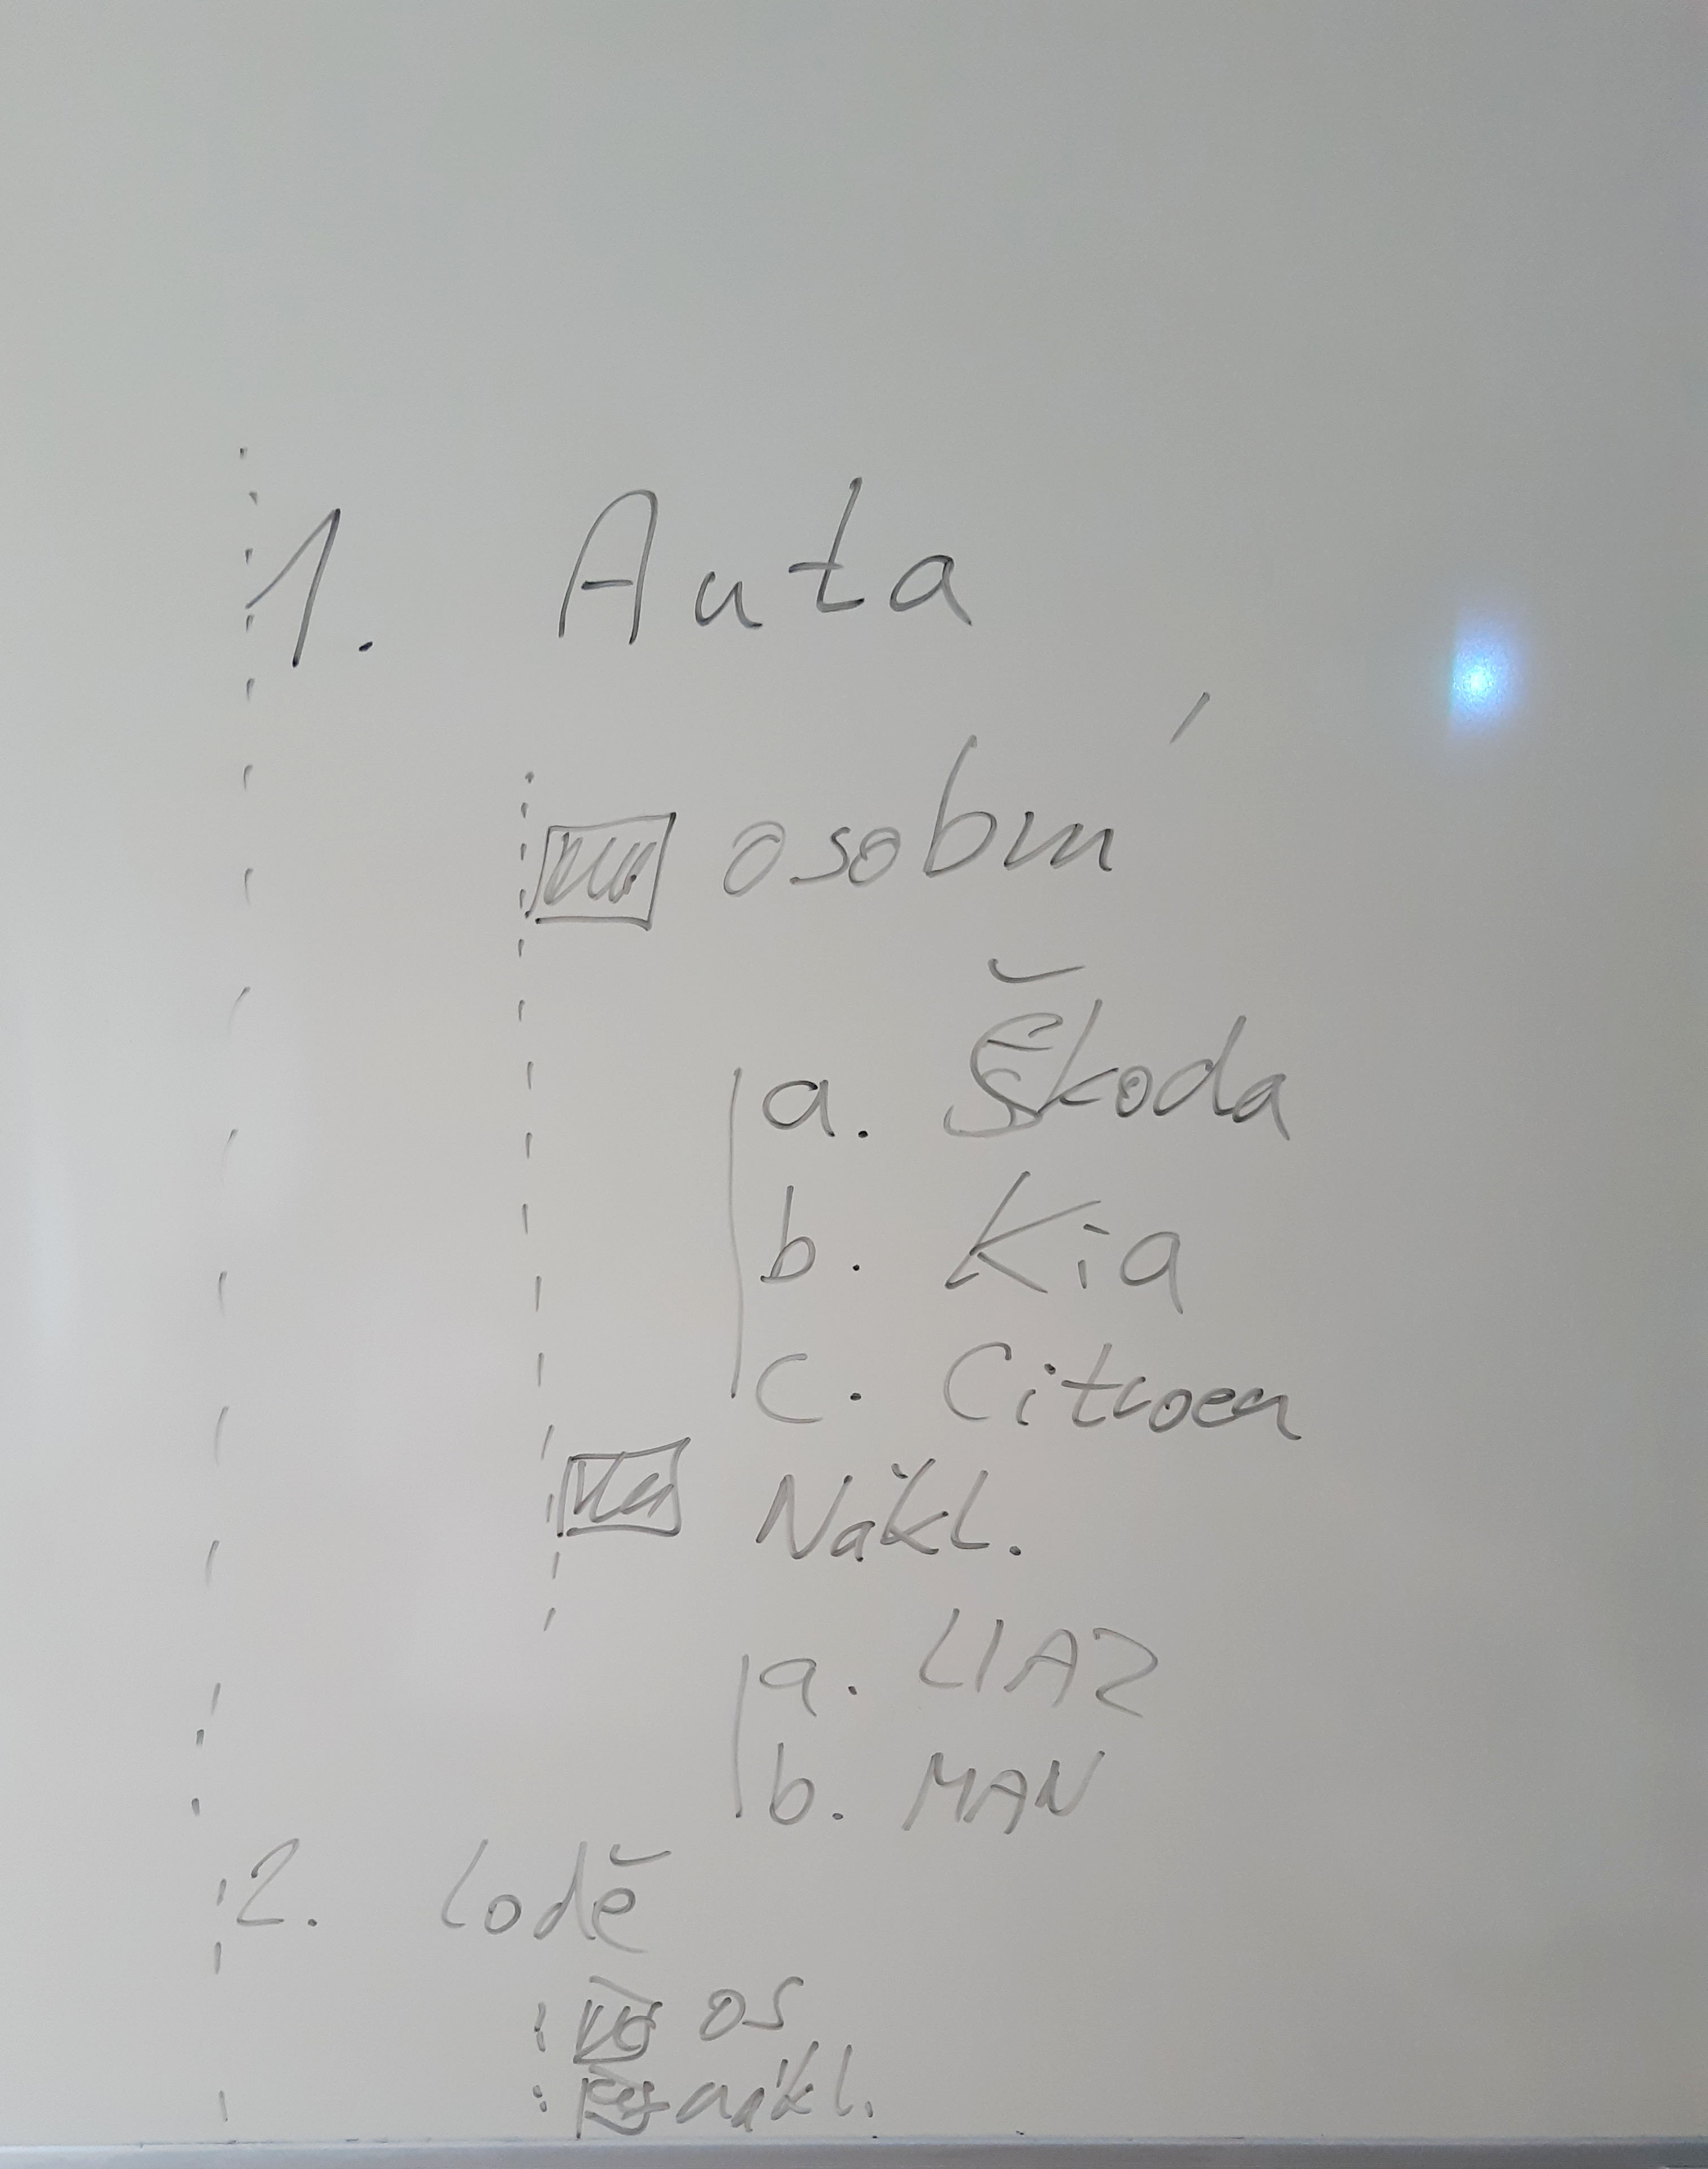 1. Auta
osobní
a. Škoda
b. Kia
c. Citroen
Nákl.
a. LIAZ
b. MAN
2. Lodě
os.
nákl.